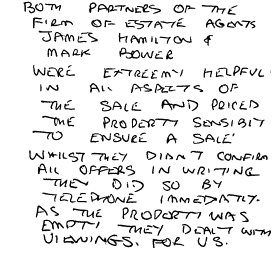 BOTH PARTNERS OF THE
FIRM OF ESTATE AGENTS
JAMES HAMILTON &
MARK BOWER
WERE EXTREEMY HELPFUL
IN All ASPECTS OF
THE SALE AND PRICED
THE PROPERTY SENSIBIY
TO ENSURE A SALE'
WHILST THEY DIDNT CONFIRM
All OFFERS IN WRITING
THEY DID SO BY
TELEPHONE IMMEDIATLY.
AS THE PROPERTY WAS
EMPTY THEY DEALT WITH
VIEWINGS, FOR US.